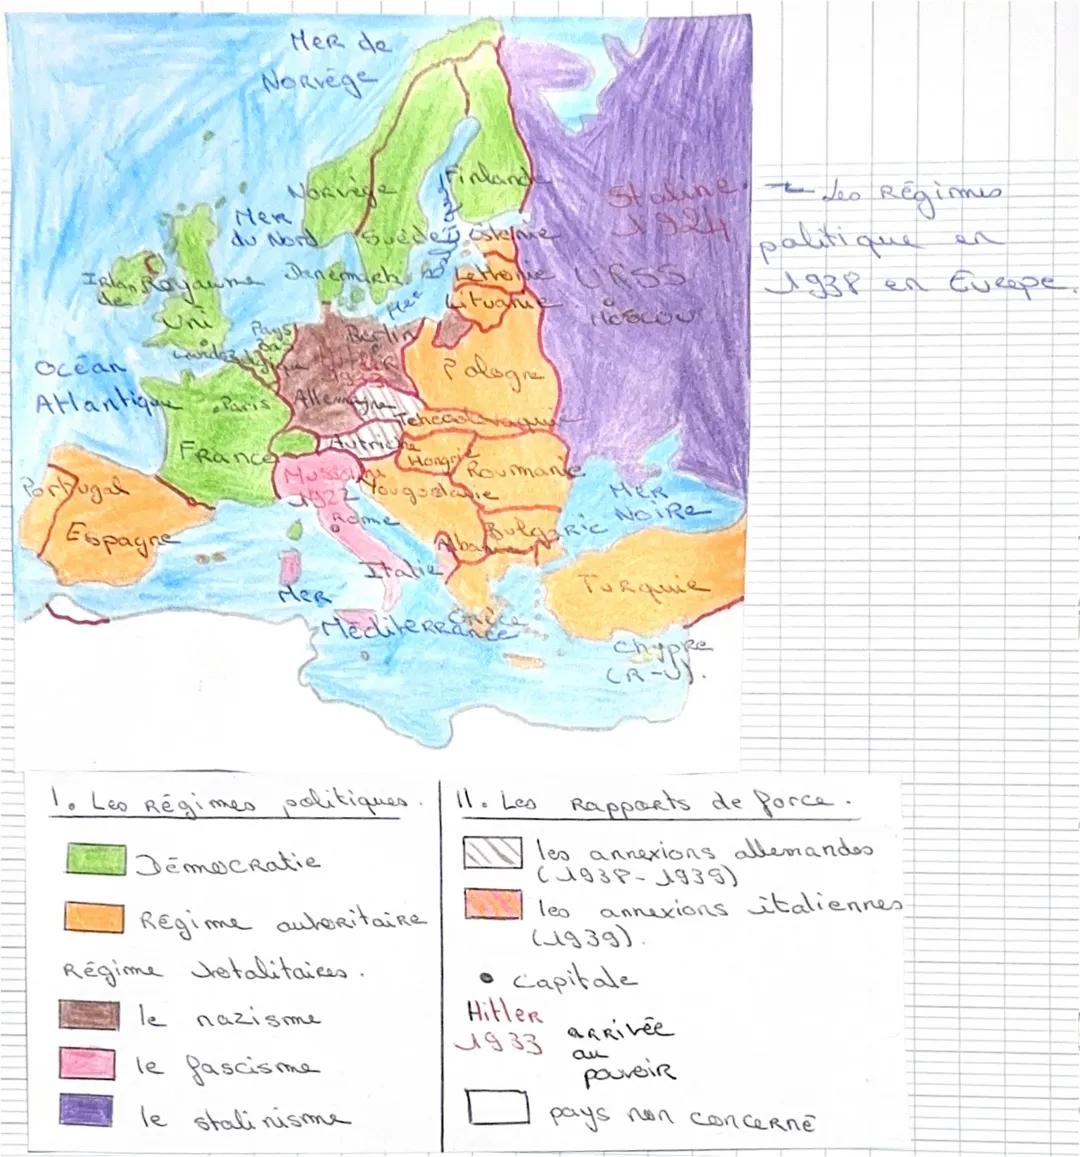 Mer de
Norvège
Norvège
Finlande
Mer
du Nord
Suède
Estonie
Staline
1924
Irlan
de
Royaume
Uni
Danemark
Mer
Baltique
Lettonie
Lituanie
URSS
Moscou
Pays
Bas
Berlin
Hitler
1933
Océan
Atlantique
Paris
Allemagne
Pologne
Tchécoslovaquie
France
Autriche
Hongrie
Roumanie
Mussolini
1922
Yougoslavie
Mer
Noire
Portugal
Espagne
Rome
Bulgarie
Albanie
Italie
Turquie
Mer
Méditerranée
Grèce
Chypre
(R-U).
Les Régimes
politique en
1938 en Europe.
I. Les Régimes politiques.
Démocratie
Régime autoritaire
Régime totalitaires.
le nazisme
le fascisme
le stalinisme
II. Les Rapports de force.
les annexions allemandes
(1938-1939)
les annexions italiennes
(1939).
Capitale
Hitler
1933
arrivée
au
pouvoir
pays non concerné